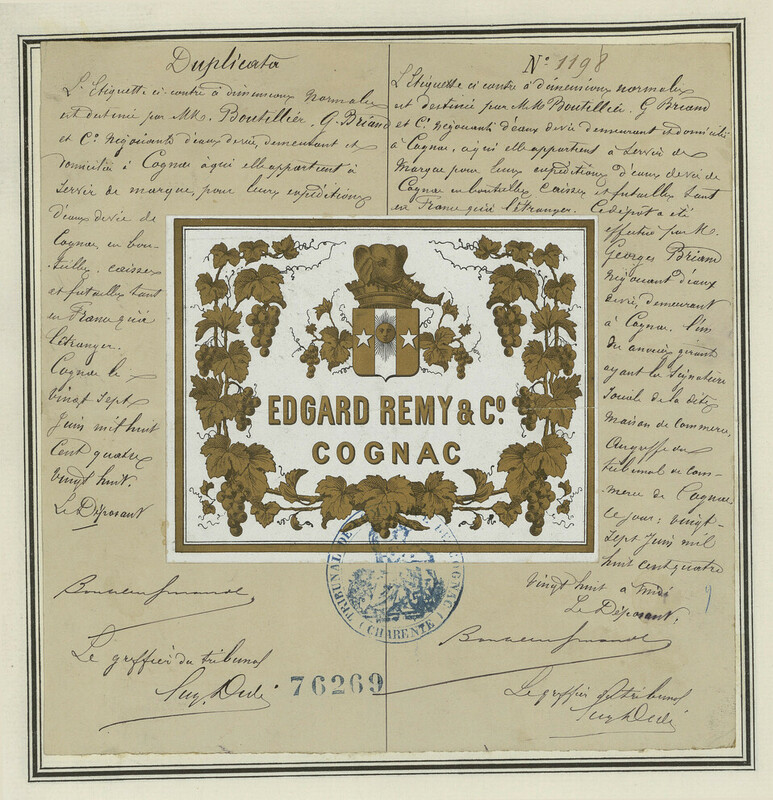 Duplicata
L'Etiquette ci-contre à dimensions normales
est destinée par MM. Boutellier, G. Briand
et Cie négociants d'eaux devie, demeurant et
domiciliés à Cognac à qui elle appartient à
servir de marque, pour leurs expéditions
d'eaux de vie de
Cognac en bou-
teilles, caisses
et futailles tant
en France qu'à
l'étranger.
Cognac le
vingt sept
Juin mil huit
Cent quatre
vingt huit.
Le Déposant
Le greffier du tribunal
N° 1198
L'Etiquette ci contre à dimensions normales
est destinée par MM Boutellier, G Briand
et Cie négociants d'eaux devie demeurant et domiciliés
à Cognac, à qui elle appartient à servir de
Marque pour leurs expéditions d'eaux de vie de
Cognac en bouteilles caisses et futailles tant
en France qu'à l'étranger. Ce dépôt a été
effectué par M.
Georges Briand
négociant d'eaux
devie, demeurant
à Cognac, l'un
des associés gérant
ayant la signature
sociale de la dite
Maison de Commerce,
au greffe du
tribunal de Com-
merce de Cognac
ce jour: vingt-
sept Juin mil
huit cent quatre
vingt huit à midi
Le Déposant.
Le greffier du tribunal
EDGARD REMY & Co.
COGNAC
TRIBUNAL DE COMMERCE DE COGNAC
(CHARENTE)
76269